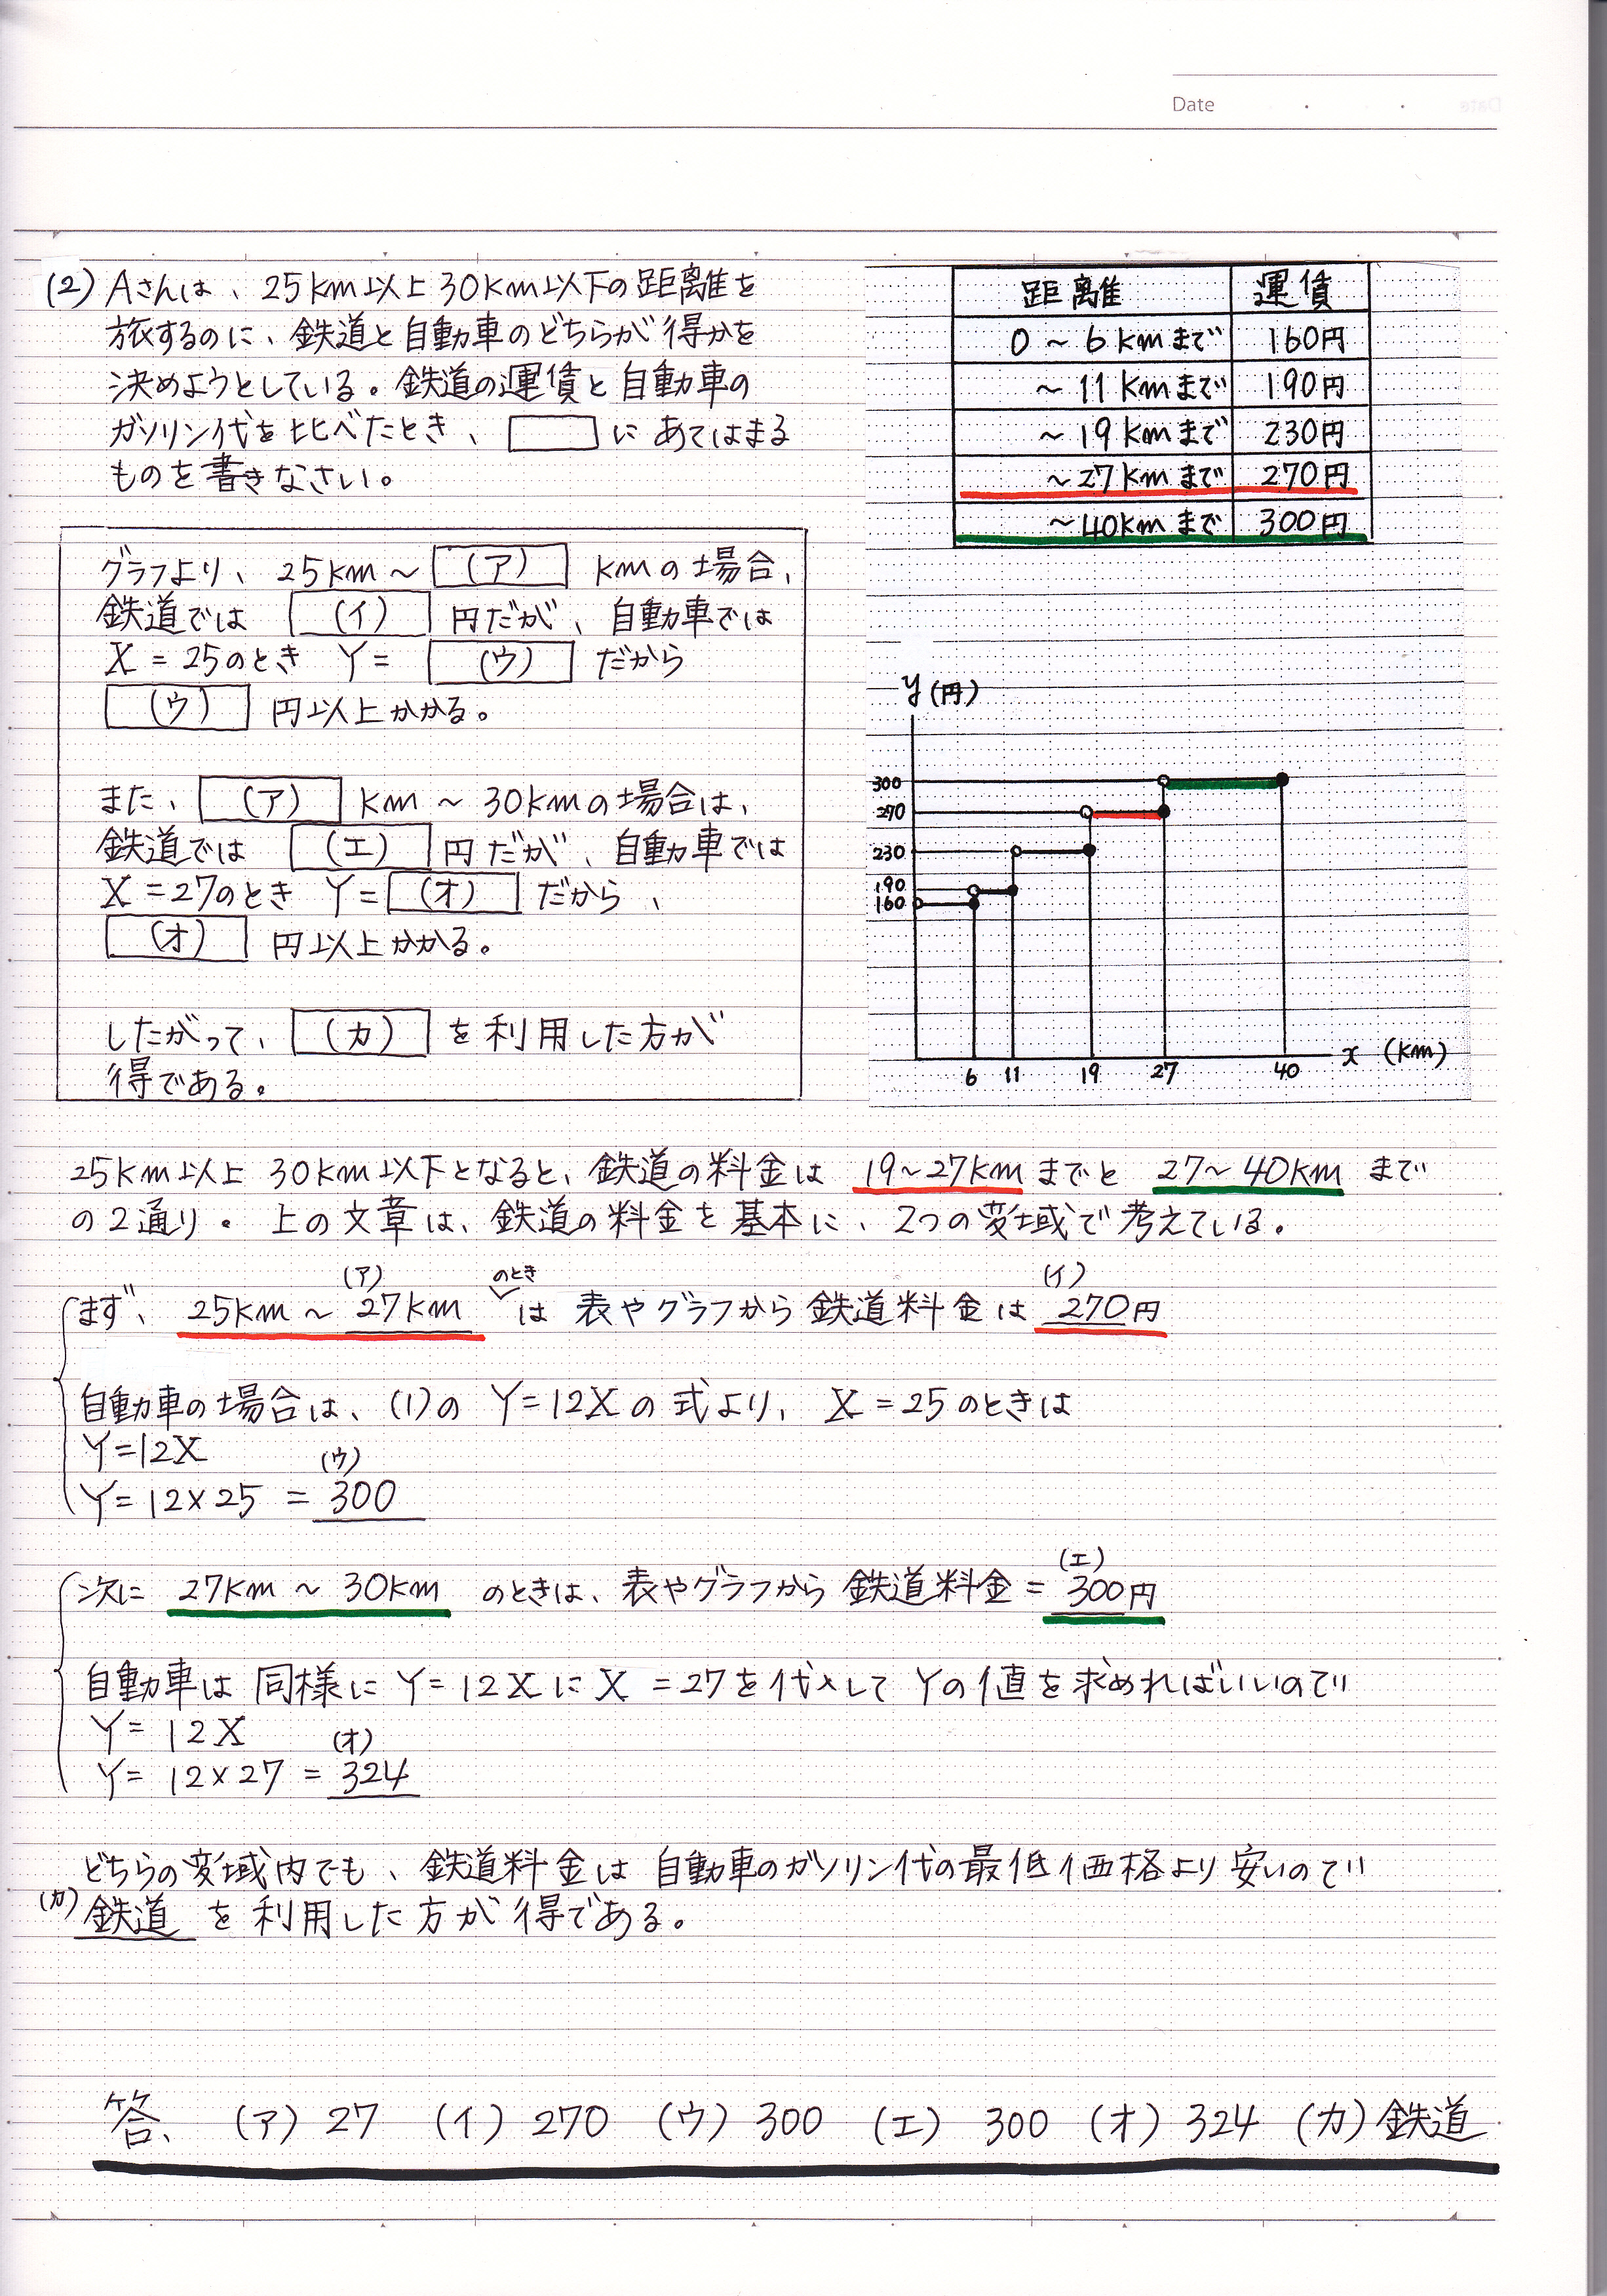 Date
(2) Aさんは、25km以上30km以下の距離を
旅するのに、鉄道と自動車のどちらが得かを
決めようとしている。鉄道の運賃と自動車の
ガソリン代を比べたとき、□にあてはまる
ものを書きなさい。
距離 運賃
0～6kmまで 160円
～11kmまで 190円
～19kmまで 230円
～27kmまで 270円
～40kmまで 300円
グラフより、25km～(ア)kmの場合、
鉄道では(イ)円だが、自動車では
X=25のとき Y=(ウ)だから
(ウ)円以上かかる。
また、(ア)km～30kmの場合は、
鉄道では(エ)円だが、自動車では
X=27のとき Y=(オ)だから、
(オ)円以上かかる。
したがって、(カ)を利用した方が
得である。
y(円)
300
270
230
190
160
6 11 19 27 40 x (km)
25km以上30km以下となると、鉄道の料金は 19～27kmまでと 27～40kmまで
の2通り。上の文章は、鉄道の料金を基本に、2つの変域で考えている。
(ア) のとき (イ)
まず、25km～27km は 表やグラフから鉄道料金は 270円
自動車の場合は、(1)の Y=12Xの式より、X=25のときは
Y=12X
(ウ)
Y=12×25 =300
(エ)
次に 27km～30km のときは、表やグラフから鉄道料金=300円
自動車は同様に Y=12XにX=27を代入してYの値を求めればいいので
Y=12X
(オ)
Y=12×27=324
どちらの変域内でも、鉄道料金は自動車のガソリン代の最低価格より安いので
(カ) 鉄道 を利用した方が得である。
答、(ア)27 (イ)270 (ウ)300 (エ)300 (オ)324 (カ)鉄道